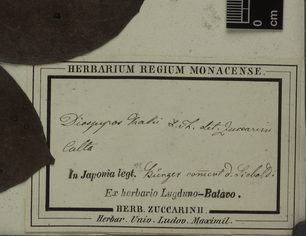 0
cm
HERBARIUM REGIUM MONACENSE.
Diospyros Kaki L. fil. det. Zuccarini
Culta
In Japonia legt. Bürger comment. d. Siebold.
Ex herbario Lugduno-Batavo.
HERB. ZUCCARINII.
Herbar. Univ. Ludov. Maximil.